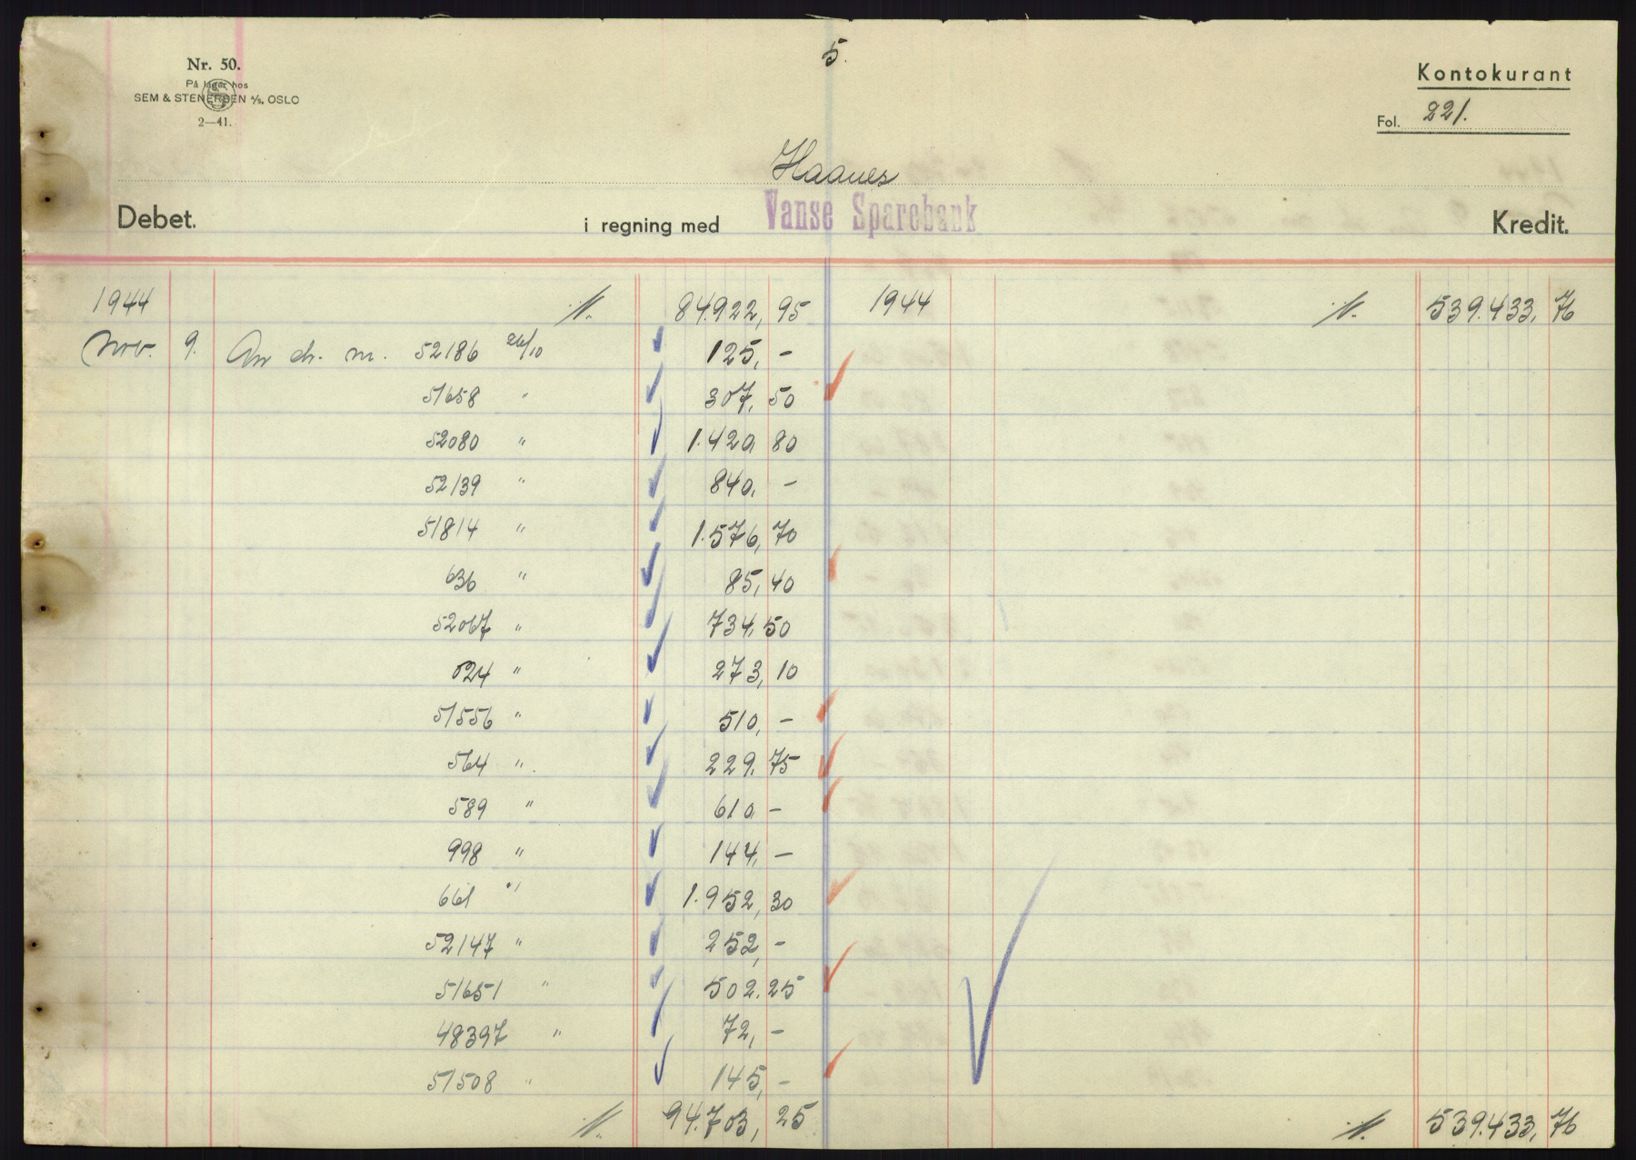 5.
Nr. 50.
På lager hos
SEM & STENERSEN A/S. OSLO
2—41.
Kontokurant
Fol. 221.
Haanes
Debet. i regning med Vanse Sparebank Kredit.
1944 84.922,95 1944 539.433,76
Nov. 9. An ch. nr. 52186 26/10 125,-
51658 " 307,50
52080 " 1.420,80
52139 " 840,-
51814 " 1.576,70
636 " 85,40
52067 " 734,50
024 " 273,10
51556 " 510,-
564 " 229,75
589 " 610,-
998 " 144,-
661 " 1.952,30
52147 " 252,-
51651 " 502,25
48397 " 72,-
51508 " 145,-
94.703,25 539.433,76